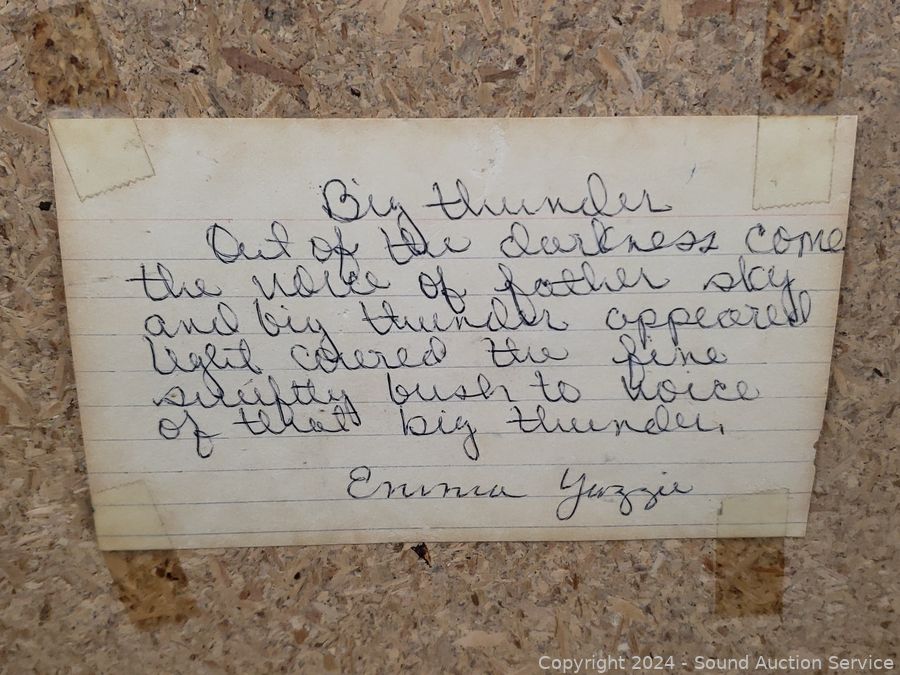 Big thunder
Out of the darkness come
the voice of father sky
and big thunder appeared
light covered the fine
swiftly bush to voice
of that big thunder.
Emma Yazzie
Copyright 2024 - Sound Auction Service